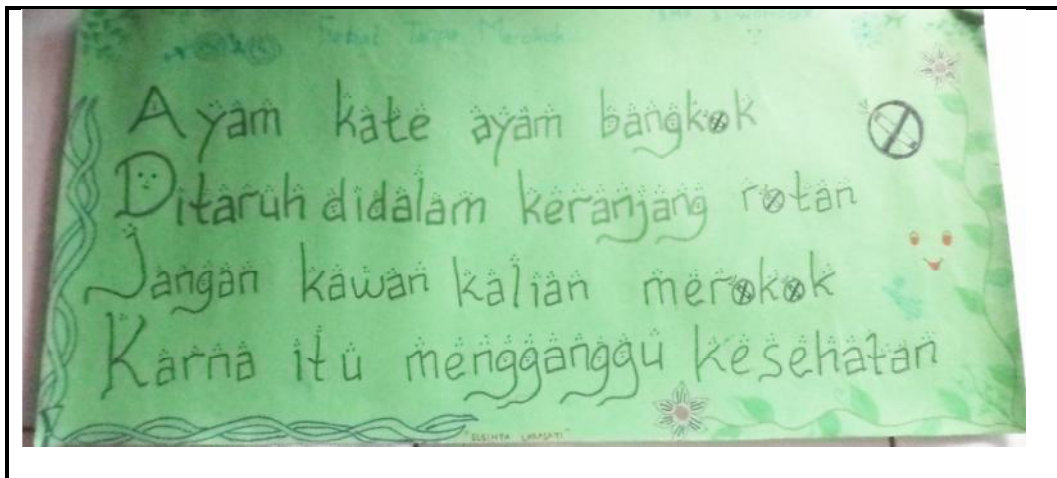 Sehat Tanpa Merokok
Ayam kate ayam bangkok
Ditaruh didalam keranjang rotan
Jangan kawan kalian merokok
Karna itu mengganggu kesehatan